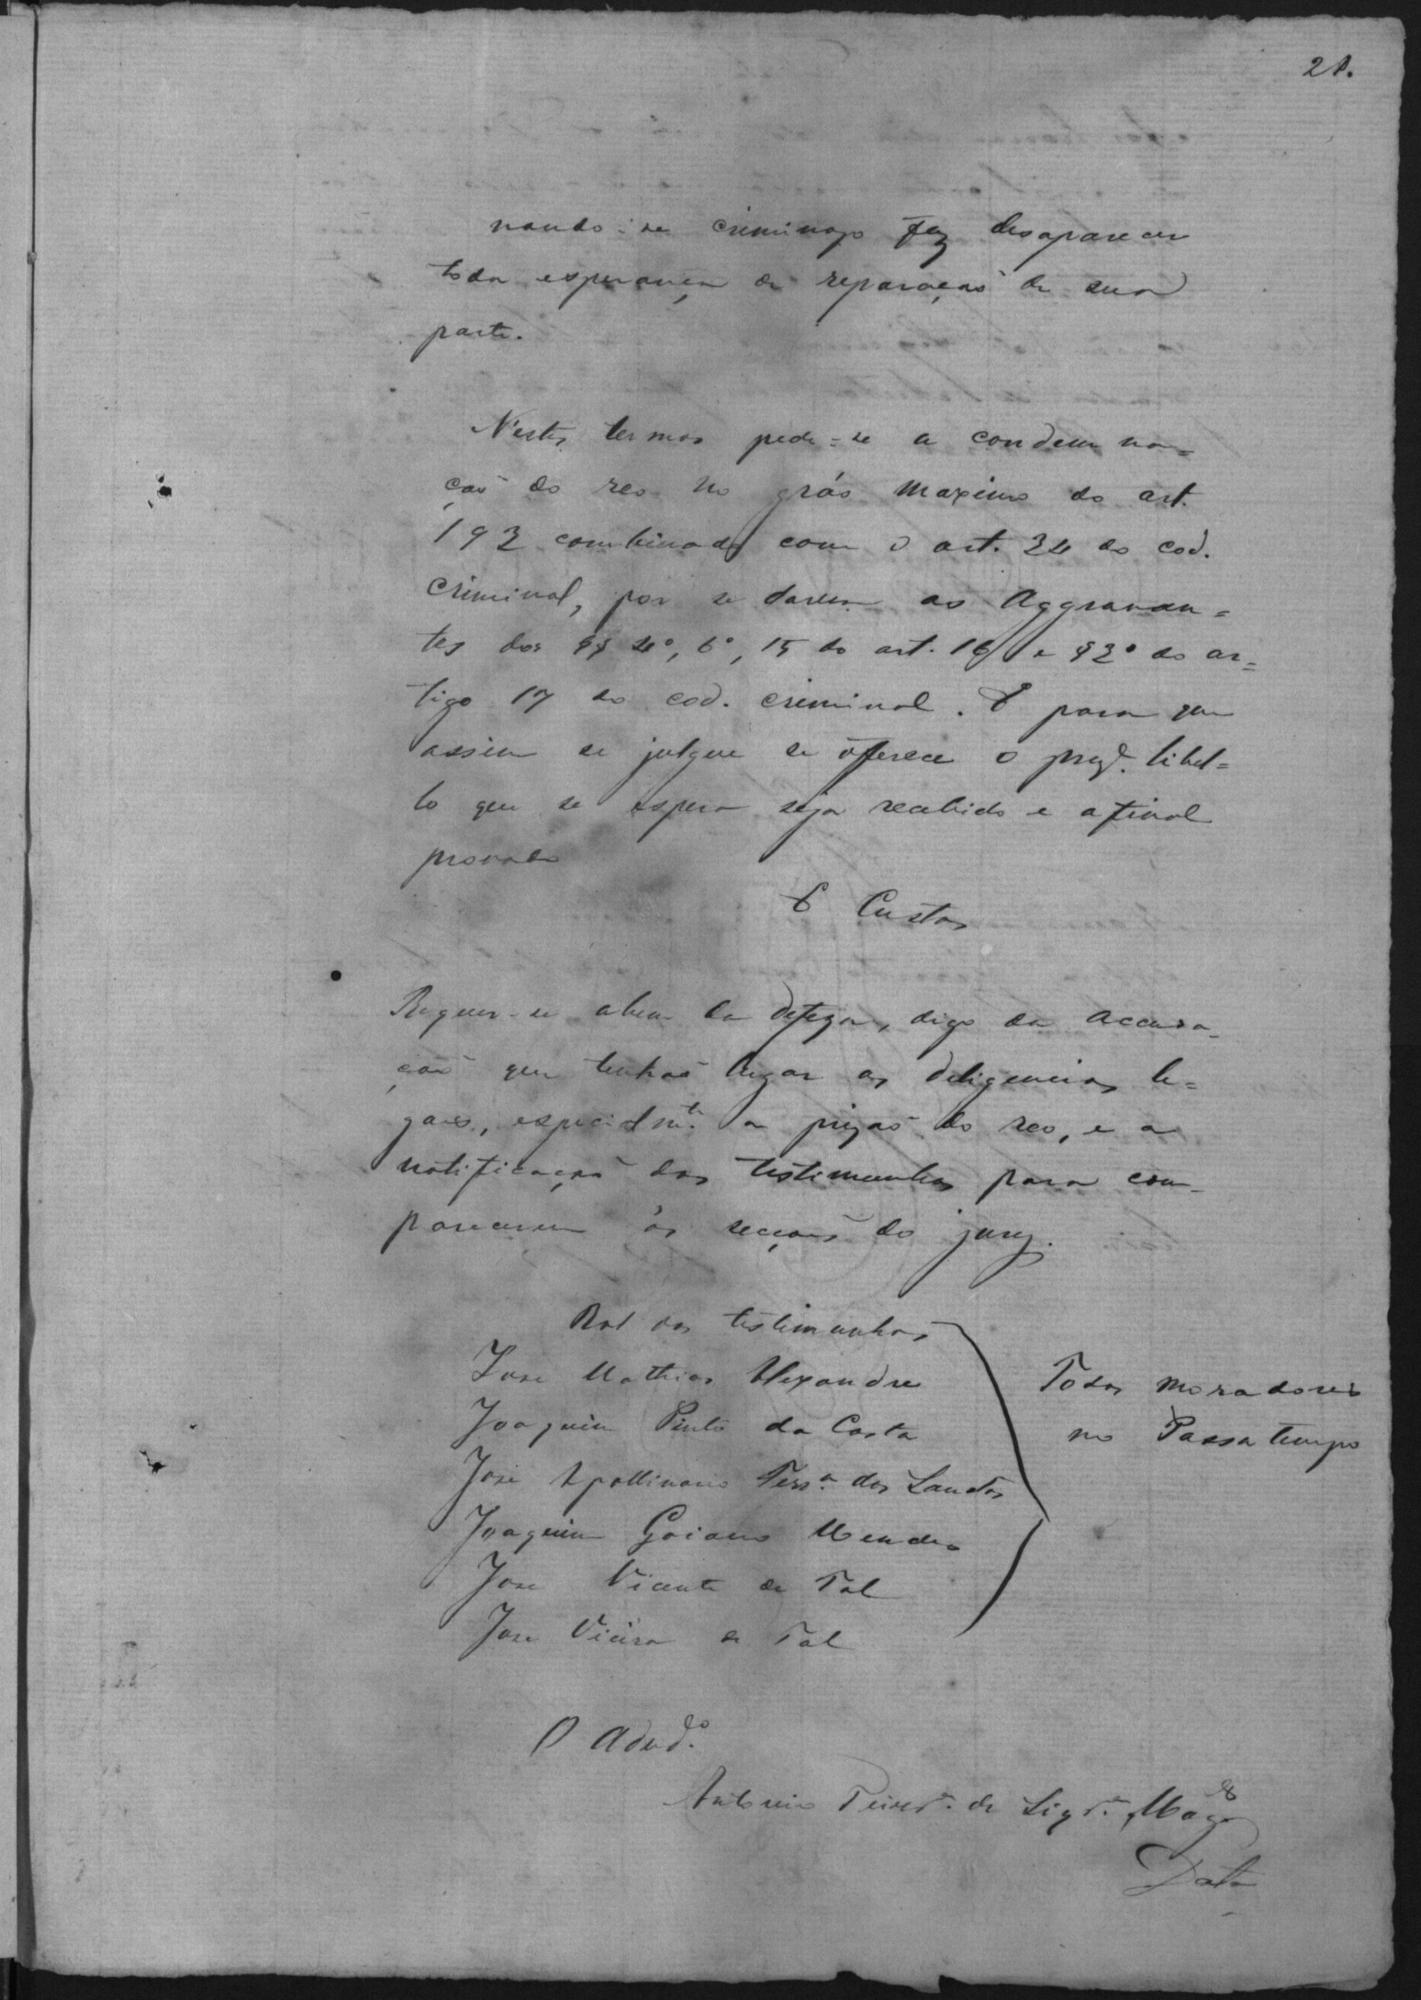 21.
nando-se criminozo fez desaparecer
toda esperança de reparação de sua
parte.
N'estes termos pede-se a condemna=
ção do reo no gráo maximo do art.
193 combinado com o art. 34 do cod.
criminal, por se darem as aggravan=
tes dos §§ 4º, 6º, 15 do art. 16 e §3º do ar=
tigo 17 do cod. criminal. E para que
assim se julgue se offerece o prez.e libel=
lo que se espera seja recebido e afinal
provado
E Custas
Requer-se a bem da defeza, digo da accusa-
ção que tenhão lugar as deligencias le=
gaes, especialm.te a prizão do reo, e a
notificação das testimunhas para com-
parecerem ás secções do jury.
Rol das testimunhas
Jose Mathias Alexandre
Todos moradores
Joaquim Pinto da Costa
no Passatempo
José Apollinario Ferr.a dos Santos
Joaquim Goiano Mendes
Jose Vicente de Tal
Jose Vieira de Tal
O Adv.do
Antonio Teixr.a de Siqr.a Mag.es
Data